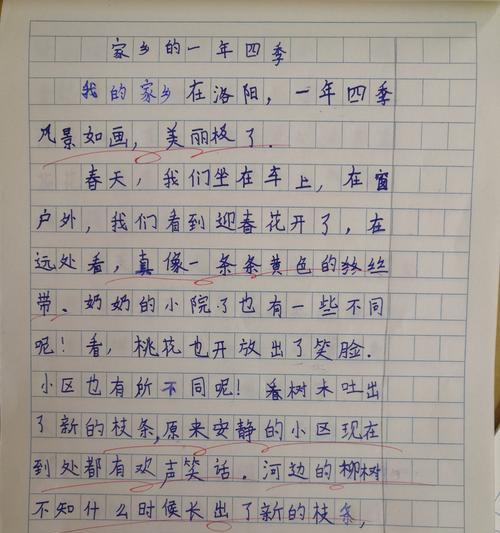 家乡的一年四季
我的家乡在洛阳，一年四季
风景如画，美丽极了.
春天，我们坐在车上，在窗
户外，我们看到迎春花开了，在
远处看，真像一条条黄色的丝
带．奶奶的小院了也有一些不同
呢！看，桃花也开放出了笑脸．
小区也有所不同呢！看树木吐出
了新的枝条，原来安静的小区现在
到处都有欢声笑话．河边的柳树
不知什么时候长出了新的枝条，